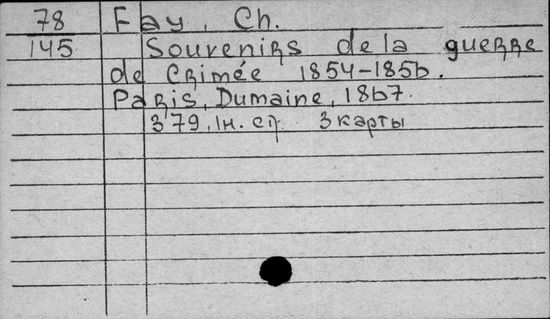 78 Fay, Ch.
145 Souvenirs de la guerre
de Crimée 1854-1856.
Paris, Dumaine, 1867.
379, Iн. ср. 3 карты